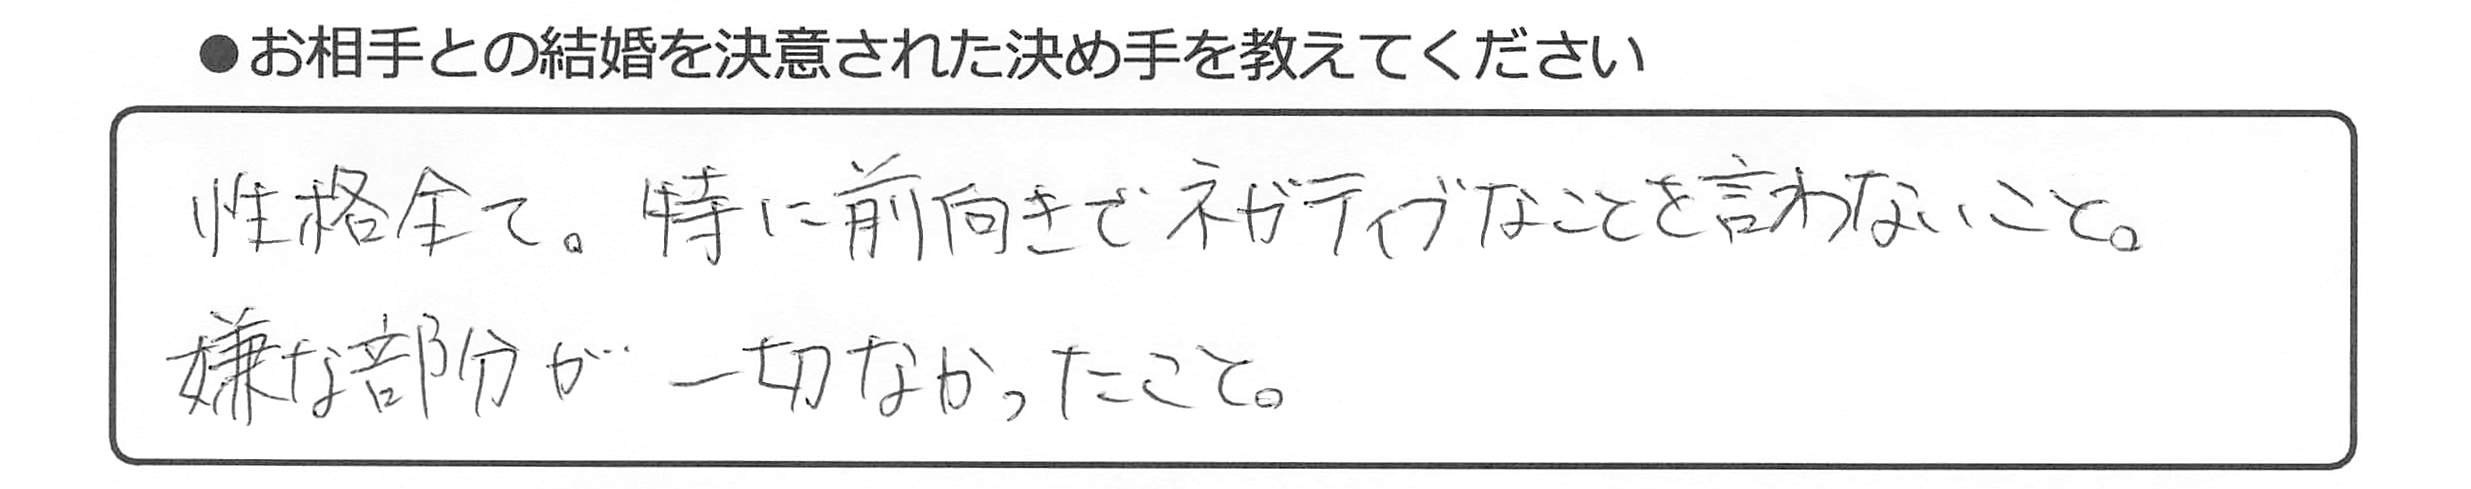 ●お相手との結婚を決意された決め手を教えてください
性格全て。特に前向きでネガティブなことを言わないこと。
嫌な部分が一切なかったこと。